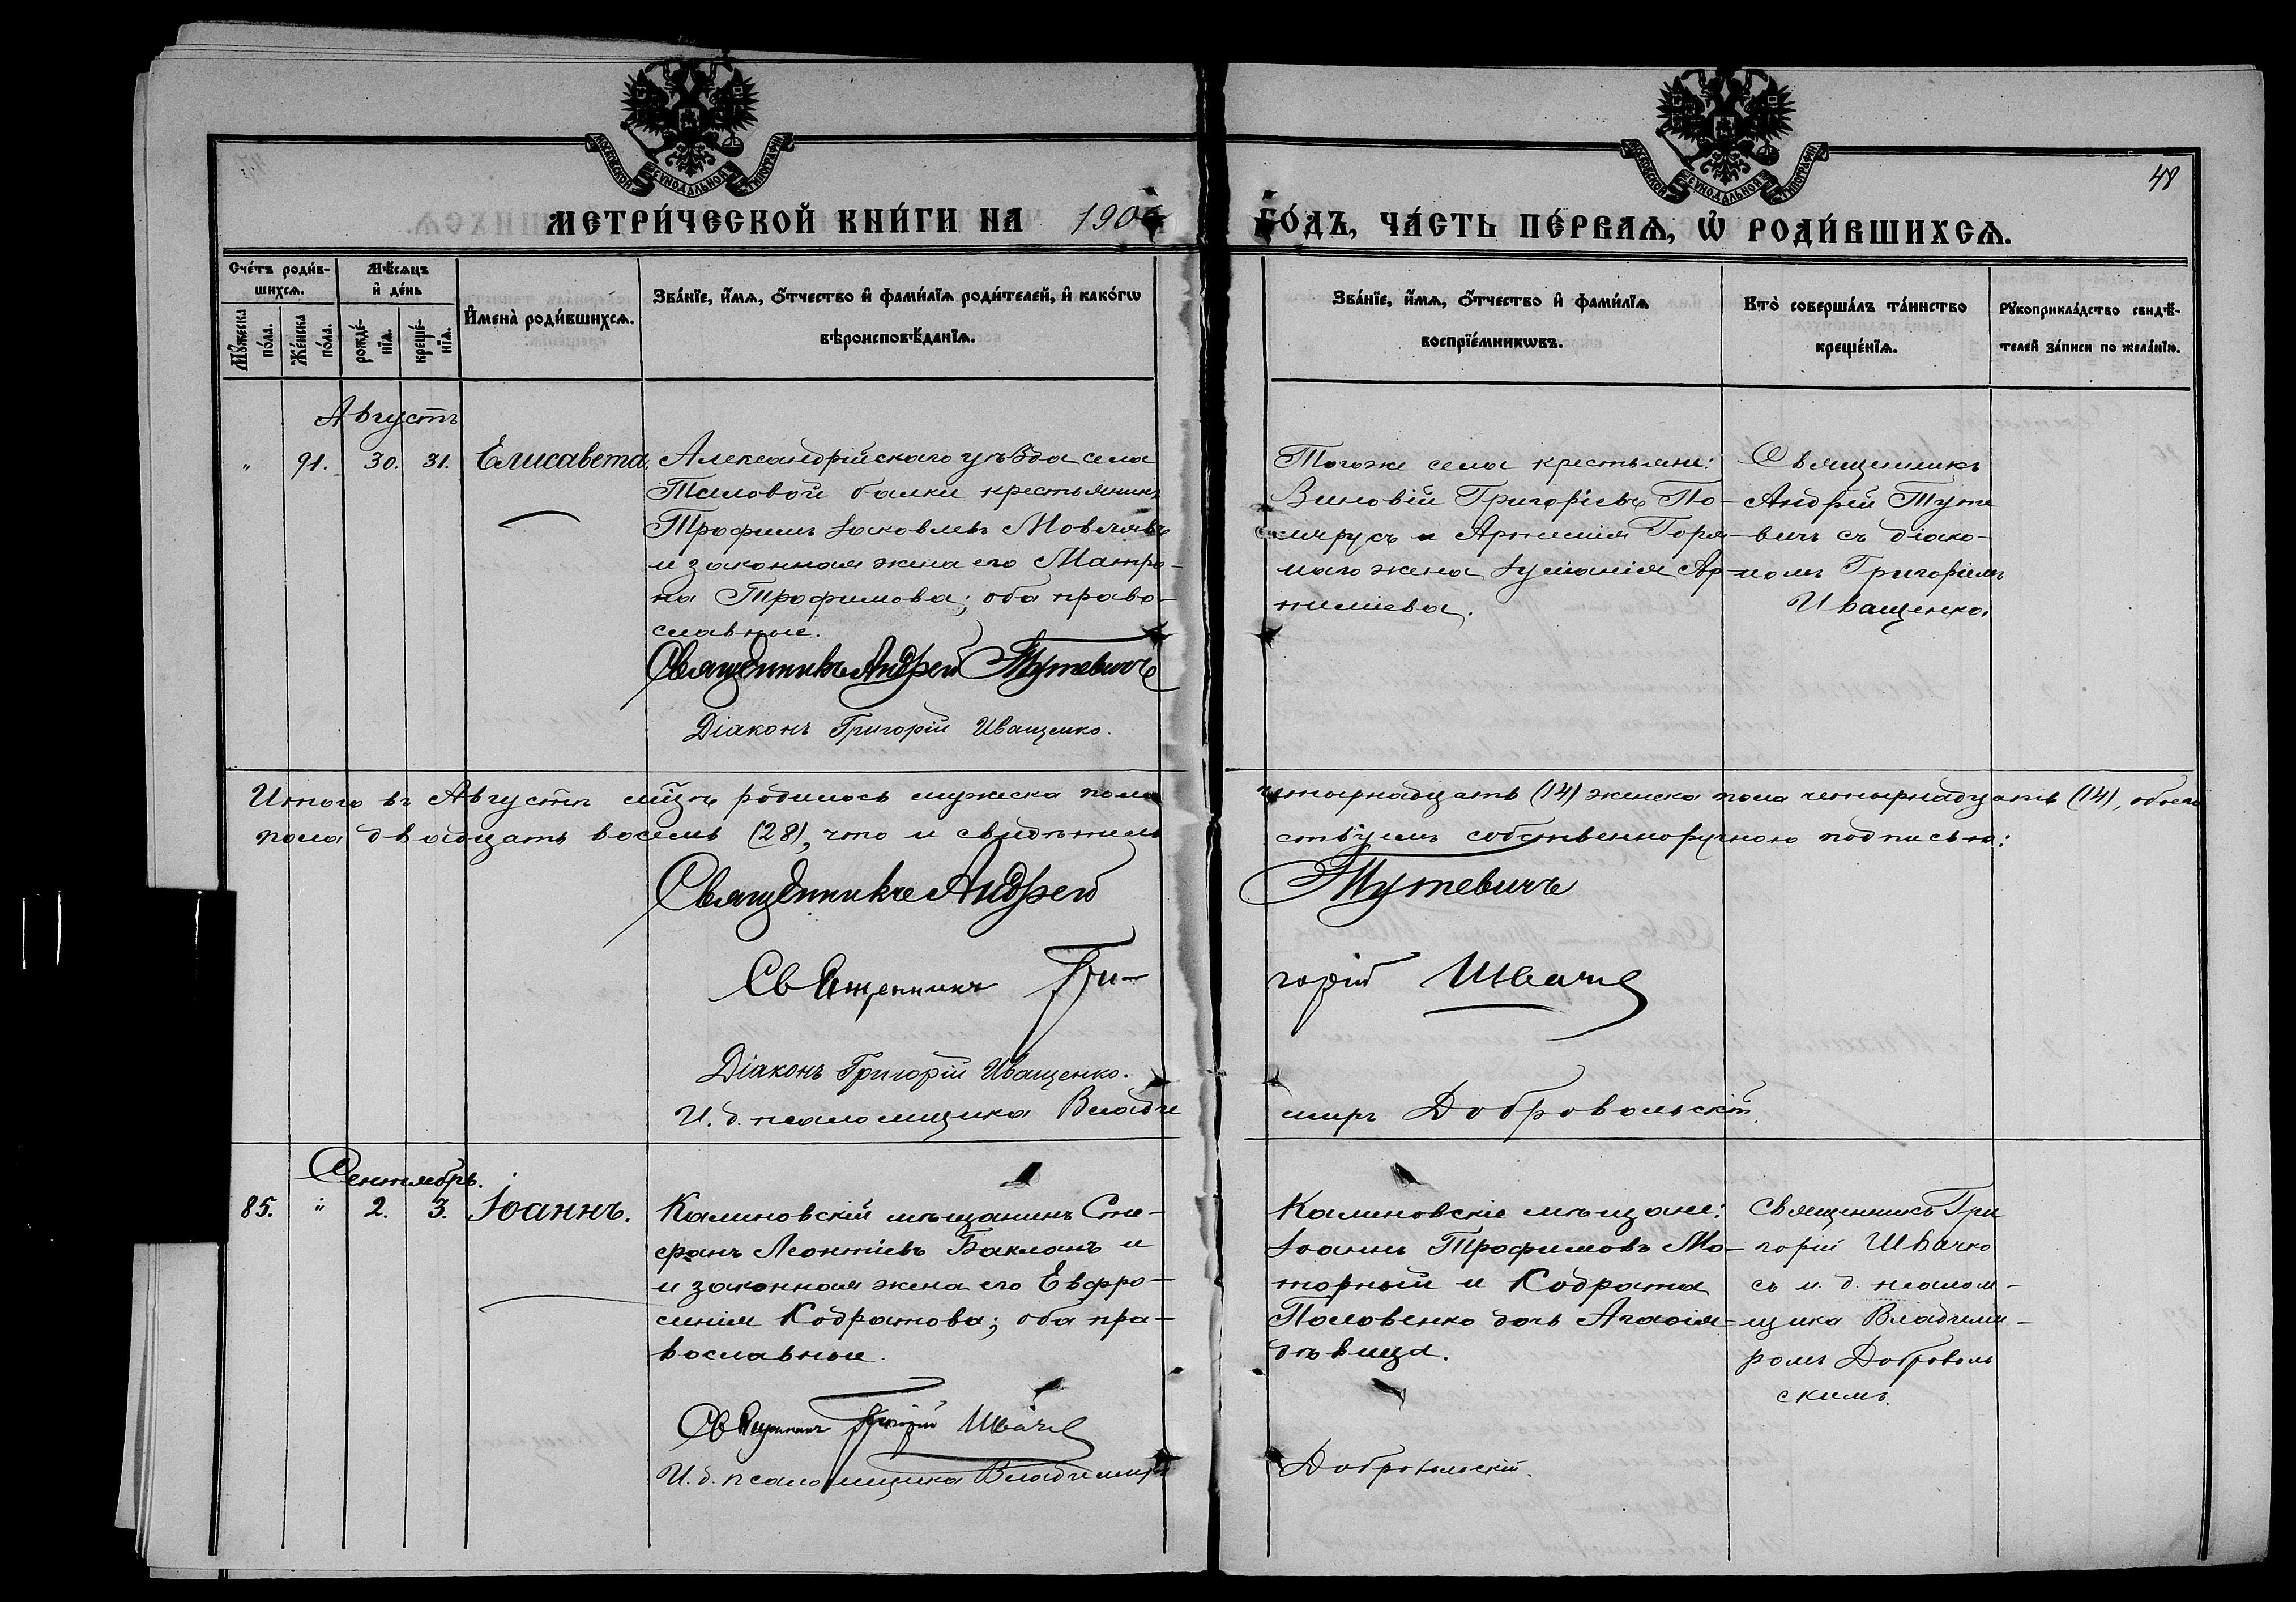 МОСКОВСКОЙ СѴНОДАЛЬНОЙ ТИПОГРАФІИ
МОСКОВСКОЙ СѴНОДАЛЬНОЙ ТИПОГРАФІИ
48
МЕТРИ́ЧЕСКОЙ КНИ́ГИ НА 190
ГО́ДЪ, ЧА́СТЬ ПЕ́РВАѦ, Ѽ РОДИ́ВШИХСѦ.
Сче́тъ роди́в-
шихсѧ.
Мѣ́сѧцъ
и҆ де́нь
Мꙋ́жеска по́ла.
Же́нска по́ла.
рожде́-
нїѧ.
креще́-
нїѧ.
И҆мена̀ роди́вшихсѧ.
Зва́нїе, и҆́мѧ, ѻ҆́тчество и҆ фами́лїѧ роди́телей, и҆ како́гѡ
вѣроисповѣ́данїѧ.
Зва́нїе, и҆́мѧ, ѻ҆́тчество и҆ фами́лїѧ
воспрїе́мникѡвъ.
Кто̀ соверша́лъ та́инство
креще́нїѧ.
Рꙋкоприкла́дство свидѣ́-
телей за́писи по жела́нїю.
Августъ
" 91. 30. 31. Елисавета.
Александрійскаго уѣзда села
балки крестьянинъ
Трофимъ Іаковлевъ
и законная жена его Матро-
на Трофимова; оба право-
славные.
Священникъ Андрей Тутевичъ
Діаконъ Григорій Иващенко.
Тогоже села крестьяне:
Зиновій Григоріевъ По-
жена
Священникъ
Андрей Туте
вичъ съ діако-
номъ Григоріемъ
Иващенко.
Итого въ Августѣ мѣсцѣ родилось мужеска пола четырнадцать (14) женска пола четырнадцать (14), обоего
пола двадцать восемь (28), что и свидѣтель ствуемъ собственноручною подписью:
Священникъ Андрей Тутевичъ
Священникъ Гри- горій Швачко
Діаконъ Григорій Иващенко.
И. д. псаломщика Влади миръ Добровольскій.
Сентябрь.
85. " 2. 3. Іоаннъ.
Калиновскій мѣщанинъ Сте-
фанъ Леонтіевъ Бакланъ и
и законная жена его Евфро-
синія Кодратова; оба пра-
вославные.
Священникъ Григорій Швачко
И. д. псаломщика Владимиръ Добровольскій.
Калиновскіе мѣщане:
Іоаннъ Трофимовъ Мо-
торный и Кодрата
Половенко дочь Агафія
дѣвица.
Священникъ Гри
горій Швачко
съ и. д. псалом-
щика Владими-
ромъ Доброволь
скимъ.